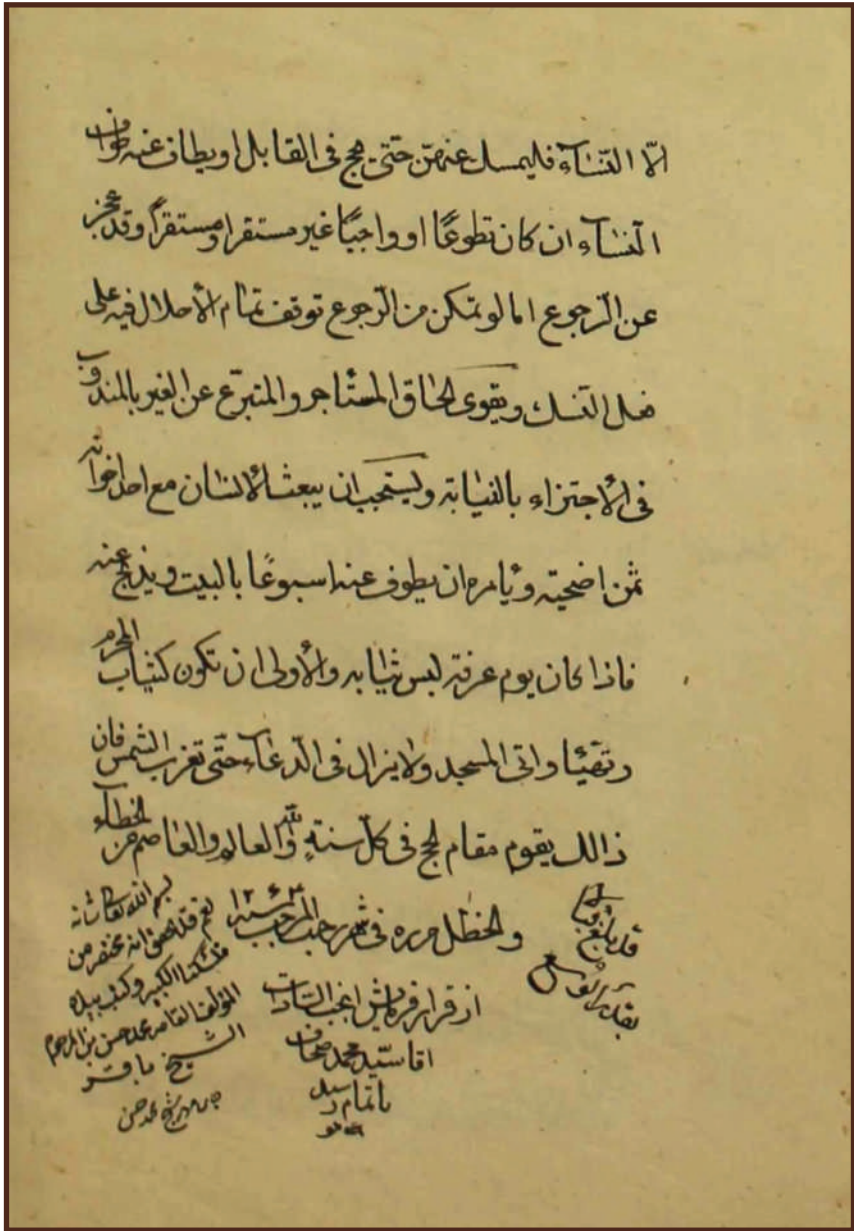 الّا النّساء فليمسك عنهنّ حتّى يحج فى القابل او يطاف عنه طواف
النّساء ان كان تطوعًا او واجبًا غير مستقر او مستقرًا وقد عجز
عن الرّجوع اما لو تمكن من الرّجوع توقف تمام الأحلال فيه على
فعل النّسك ويقوى الحاق المستأجر والمتبرّع عن الغير بالمندوب
فى الأجتزاء بالنيابة ويستحب ان يبعث الأنسان مع احد اخوانه
ثمن اضحيته ويأمره ان يطوف عنه اسبوعًا بالبيت ويذبح عنه
فاذا كان يوم عرفة لبس ثيابه والأولى ان تكون كثياب المحرم
وتهيّأ واتى المسجد ولا يزال فى الدّعاء حتّى تغرب الشّمس فان
ذالك يقوم مقام الحج فى كلّ سنة والله العالم والعاصم من الخطاء
والخطل حرره فى شهر رجب المرجب سنة ١٢٦٣
از قرار فرمايش السّادات
اقا سيّد محمد صحاف
باتمام رسيد
قد بلغ
بسم الله تعالى شانه
نعم فانه مختصر من
منسكنا الكبير وكتب بيده
المؤلف القاصر محمد حسن بن المرحوم
الشيخ باقر
محمد حسن